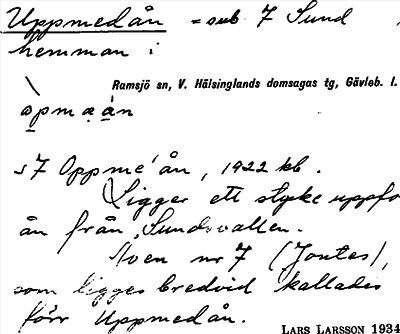 Uppmedån = sub 7 Sund
hemman i
Ramsjö sn, V. Hälsinglands domsagas tg, Gävleb. l.
òpmạạ́n
s 7 Oppme´ån, 1922 kb.
Ligger ett stycke uppfö
ån från Sundsvallen.
Även nr 7 (Jontes),
som ligger bredvid kallades
förr Uppmedån.
LARS LARSSON 1934